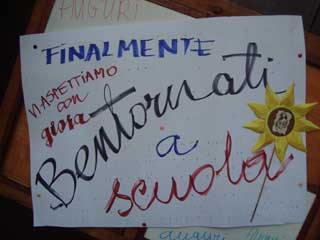 AUGURI
FINALMENTE
VI ASPETTIAMO
con
gioia
Bentornati
a
scuola
auguri